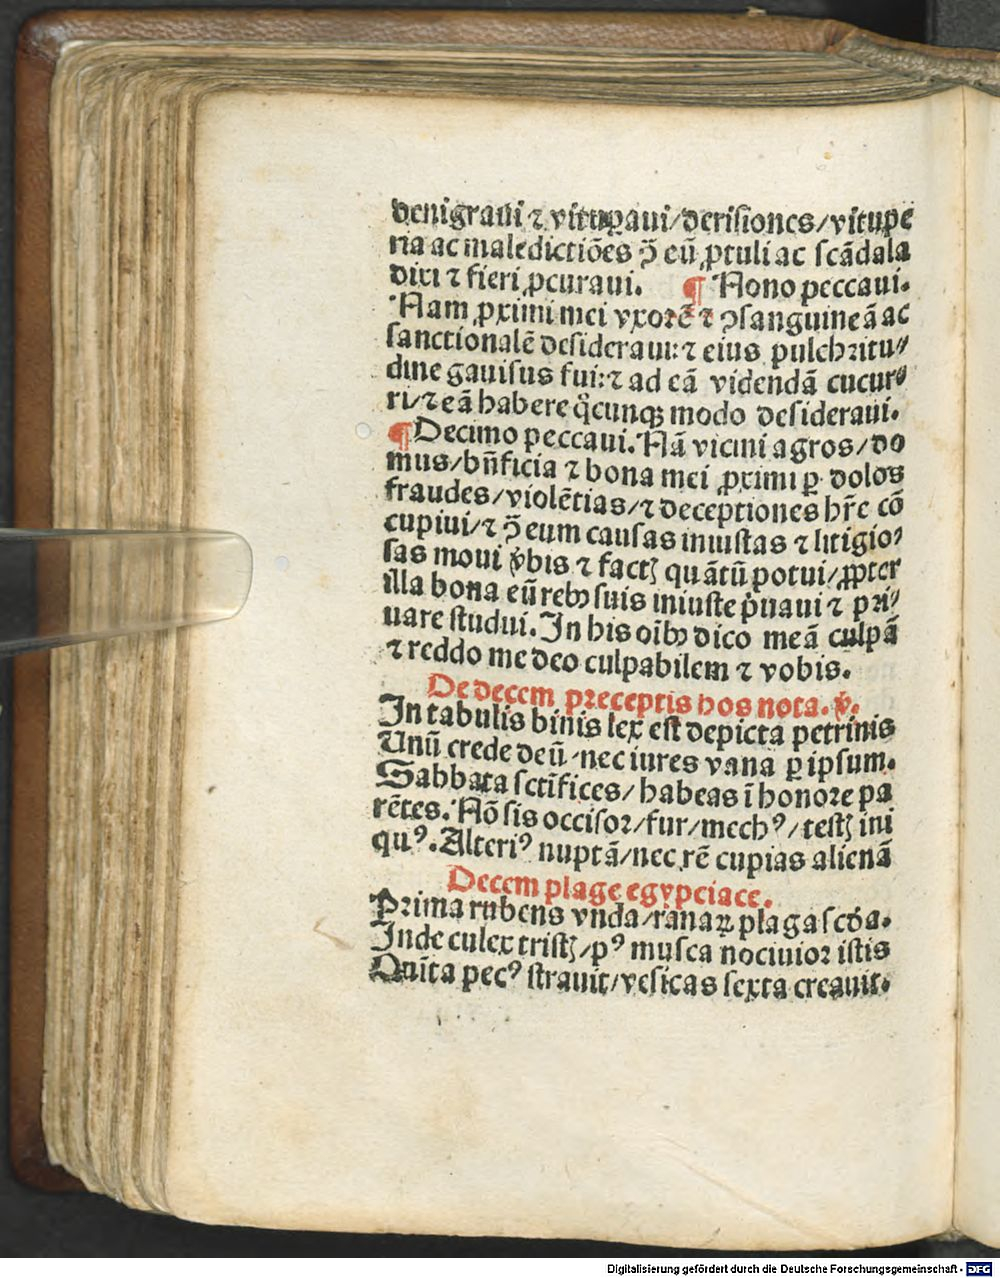 denigraui ⁊ vituꝑaui/derisiones/vitupe
ria ac maledictiões ꝯ̃ eũ ꝓtuli ac scãdala
dixi ⁊ fieri ꝓcuraui. ¶ Nono peccaui.
Nam ꝓximi mei vxorẽ ⁊ ꝯsanguineã ac
sanctionalẽ desideraui: ⁊ eius pulchritu⸗
dine gauisus fui: ⁊ ad eã videndã cucur⸗
ri/⁊ eã habere q̃cunqꝫ modo desideraui.
¶ Decimo peccaui. Nã vicini agros/do
mus/bñficia ⁊ bona mei ꝓximi ꝑ dolos
fraudes/violẽtias/⁊ deceptiones hr̃e cõ
cupiui/⁊ ꝯ̃ eum causas iniustas ⁊ litigio⸗
sas moui v̾bis ⁊ factꝭ quãtũ potui/ꝓpter
illa bona eũ rebꝰ suis iniuste p̾uaui ⁊ pri⸗
uare studui. In his oĩbꝰ dico meã culpã
⁊ reddo me deo culpabilem ⁊ vobis.
De decem preceptis hos nota. v̾.
In tabulis binis lex est depicta petrinis
Unũ crede deũ/nec iures vana ꝑ ipsum.
Sabbata sctĩfices/habeas ĩ honore pa
rẽtes. Nõ sis occisor/fur/mechꝰ/testꝭ ini
quꝰ. Alteriꝰ nuptã/nec rẽ cupias alienã
Decem plage egypciace.
Prima rubens vnda/ranaꝝ plaga scd̾a.
Inde culex tristꝭ/pꝰ musca nociuior istis
Quĩta pecꝰ strauit/vesicas sexta creauit.
Digitalisierung gefördert durch die Deutsche Forschungsgemeinschaft - DFG